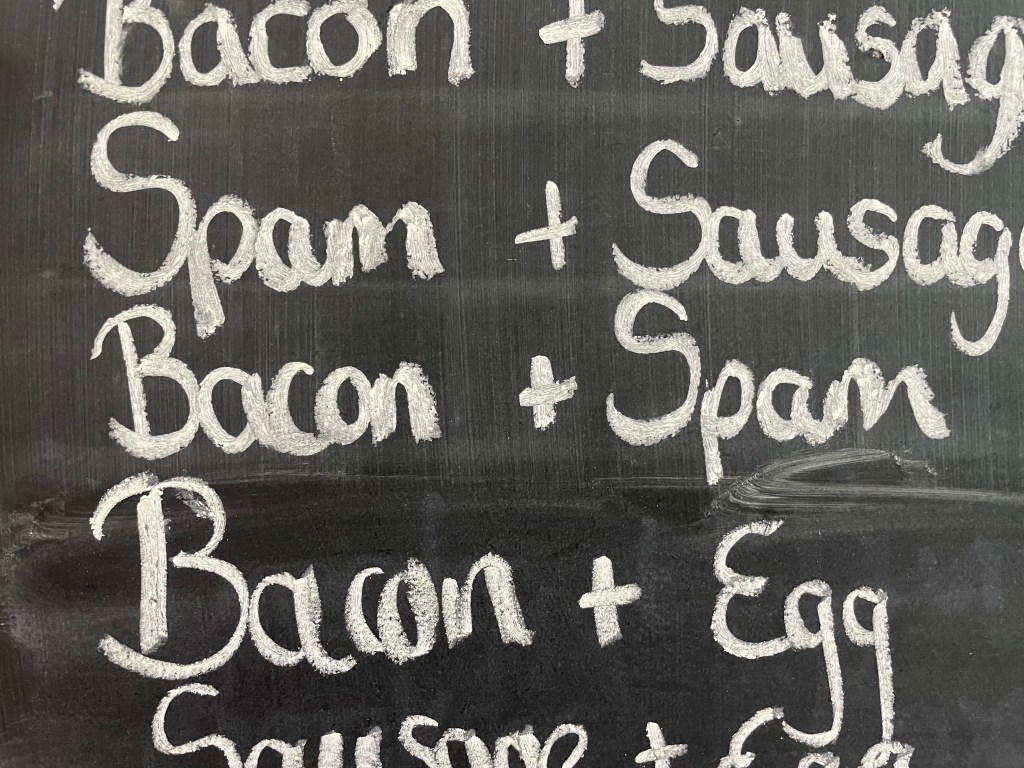 Bacon + Sausag
Spam + Sausag
Bacon + Spam
Bacon + Egg
Sausage + Egg